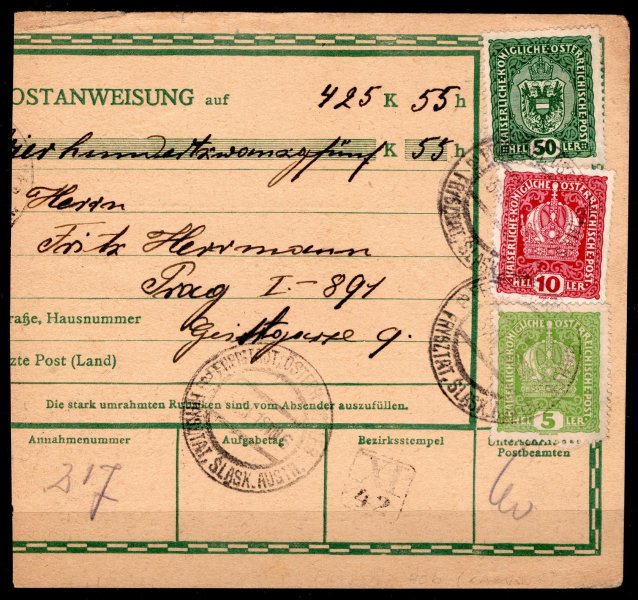 OSTANWEISUNG auf 425 K 55 h
vierhundertzwanzgfünf K 55 h
Herrn
Fritz Herrmann
Prag I-891
raße, Hausnummer Geistgasse 9.
zte Post (Land)
Die stark umrahmten Rubriken sind vom Absender auszufüllen.
Annahmenummer Aufgabetag Bezirksstempel Unterschrift Postbeamten
317
VI
42
KAISERLICHE·KÖNIGLICHE·ÖSTERREICHISCHE·POST
HEL 50 LER
KAISERLICHE·KÖNIGLICHE·ÖSTERREICHISCHE·POST
HEL 10 LER
KAISERLICHE·KÖNIGLICHE·ÖSTERREICHISCHE·POST
HEL 5 LER
FREISTADT, ÖSTERR.
FRYSZTAT, ŚLĄSK. AUSTR.
FRYSZTAT, ŚLĄSK.
FRYSZTAT, ŚLĄSK.